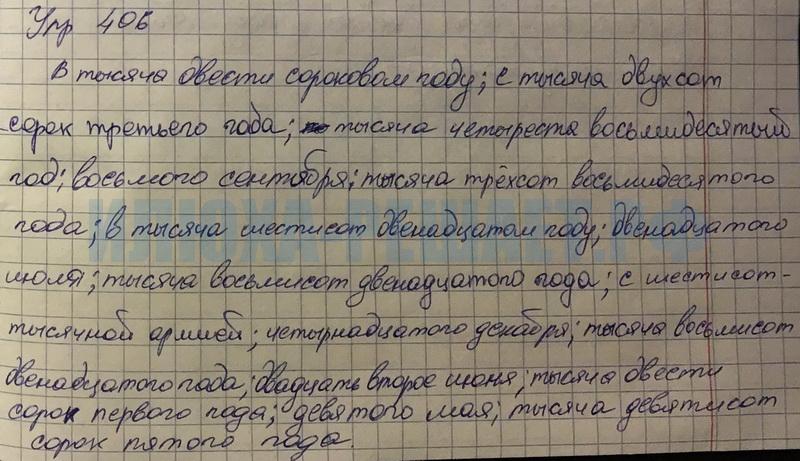 Упр 406
В тысяча двести сороковом году; с тысяча двухсот
сорок третьего года; тысяча четыреста восьмидесятый
год; восьмого сентября; тысяча трёхсот восьмидесятого
года; в тысяча шестисот двенадцатом году; двенадцатого
июля; тысяча восьмисот двенадцатого года; с шестисот-
тысячной армией; четырнадцатого декабря; тысяча восьмисот
двенадцатого года; двадцать второе июня; тысяча двести
сорок первого года; девятого мая; тысяча девятисот
сорок пятого года.
ИЛЮХА-РЕШАЕТ.РФ